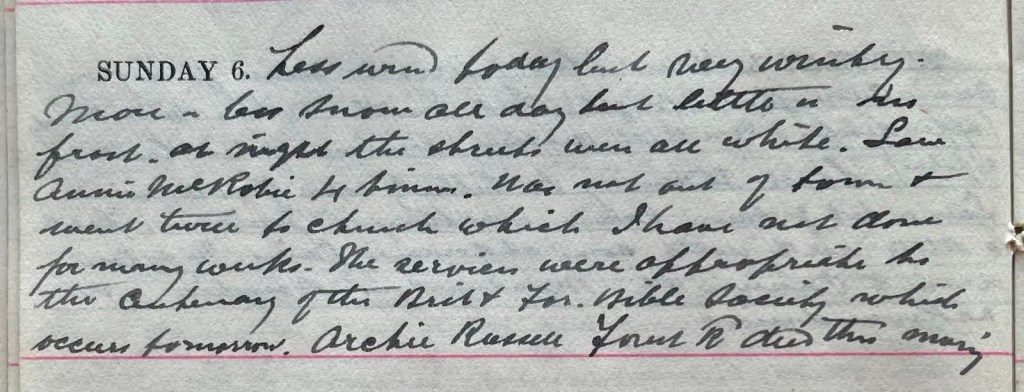 SUNDAY 6. Less wind today but very wintry.
More or less snow all day but little or no
frost. at night the streets were all white. Saw
Annie McRobie 4 times. Was not out of town &
went twice to church which I have not done
for many weeks. The services were appropriate to
the Centenary of the Brit & For. Bible Society which
occurs tomorrow. Archie Russell Forest Rd died this morning